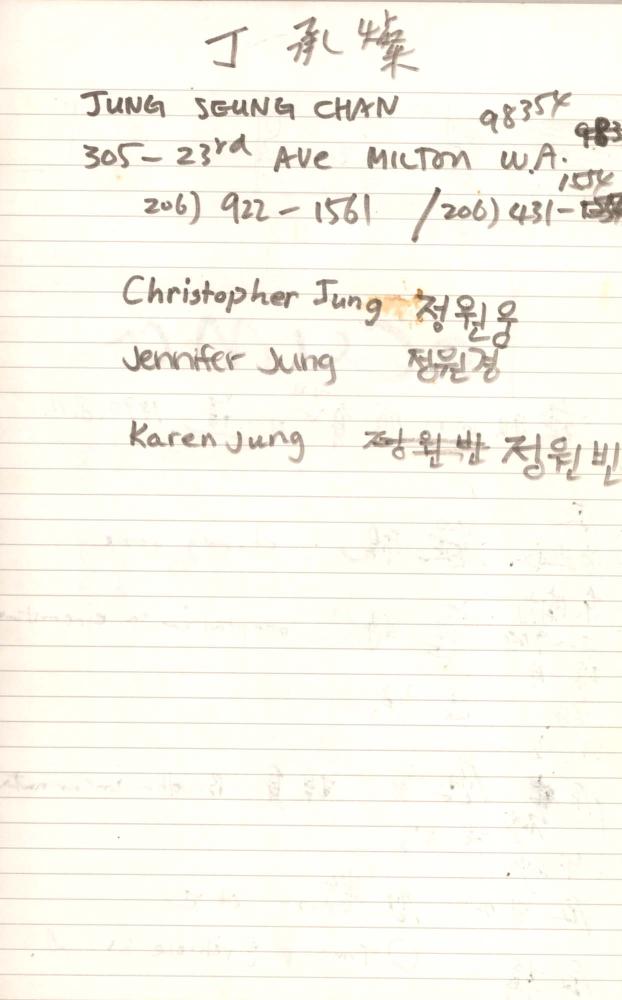 丁 承 燦
JUNG SEUNG CHAN 98354
983
305-23rd AVE MILTON W.A.
1554
206) 922-1561 / 206) 431-
Christopher Jung 정원웅
Jennifer Jung 정원경
Karen Jung 정원빈